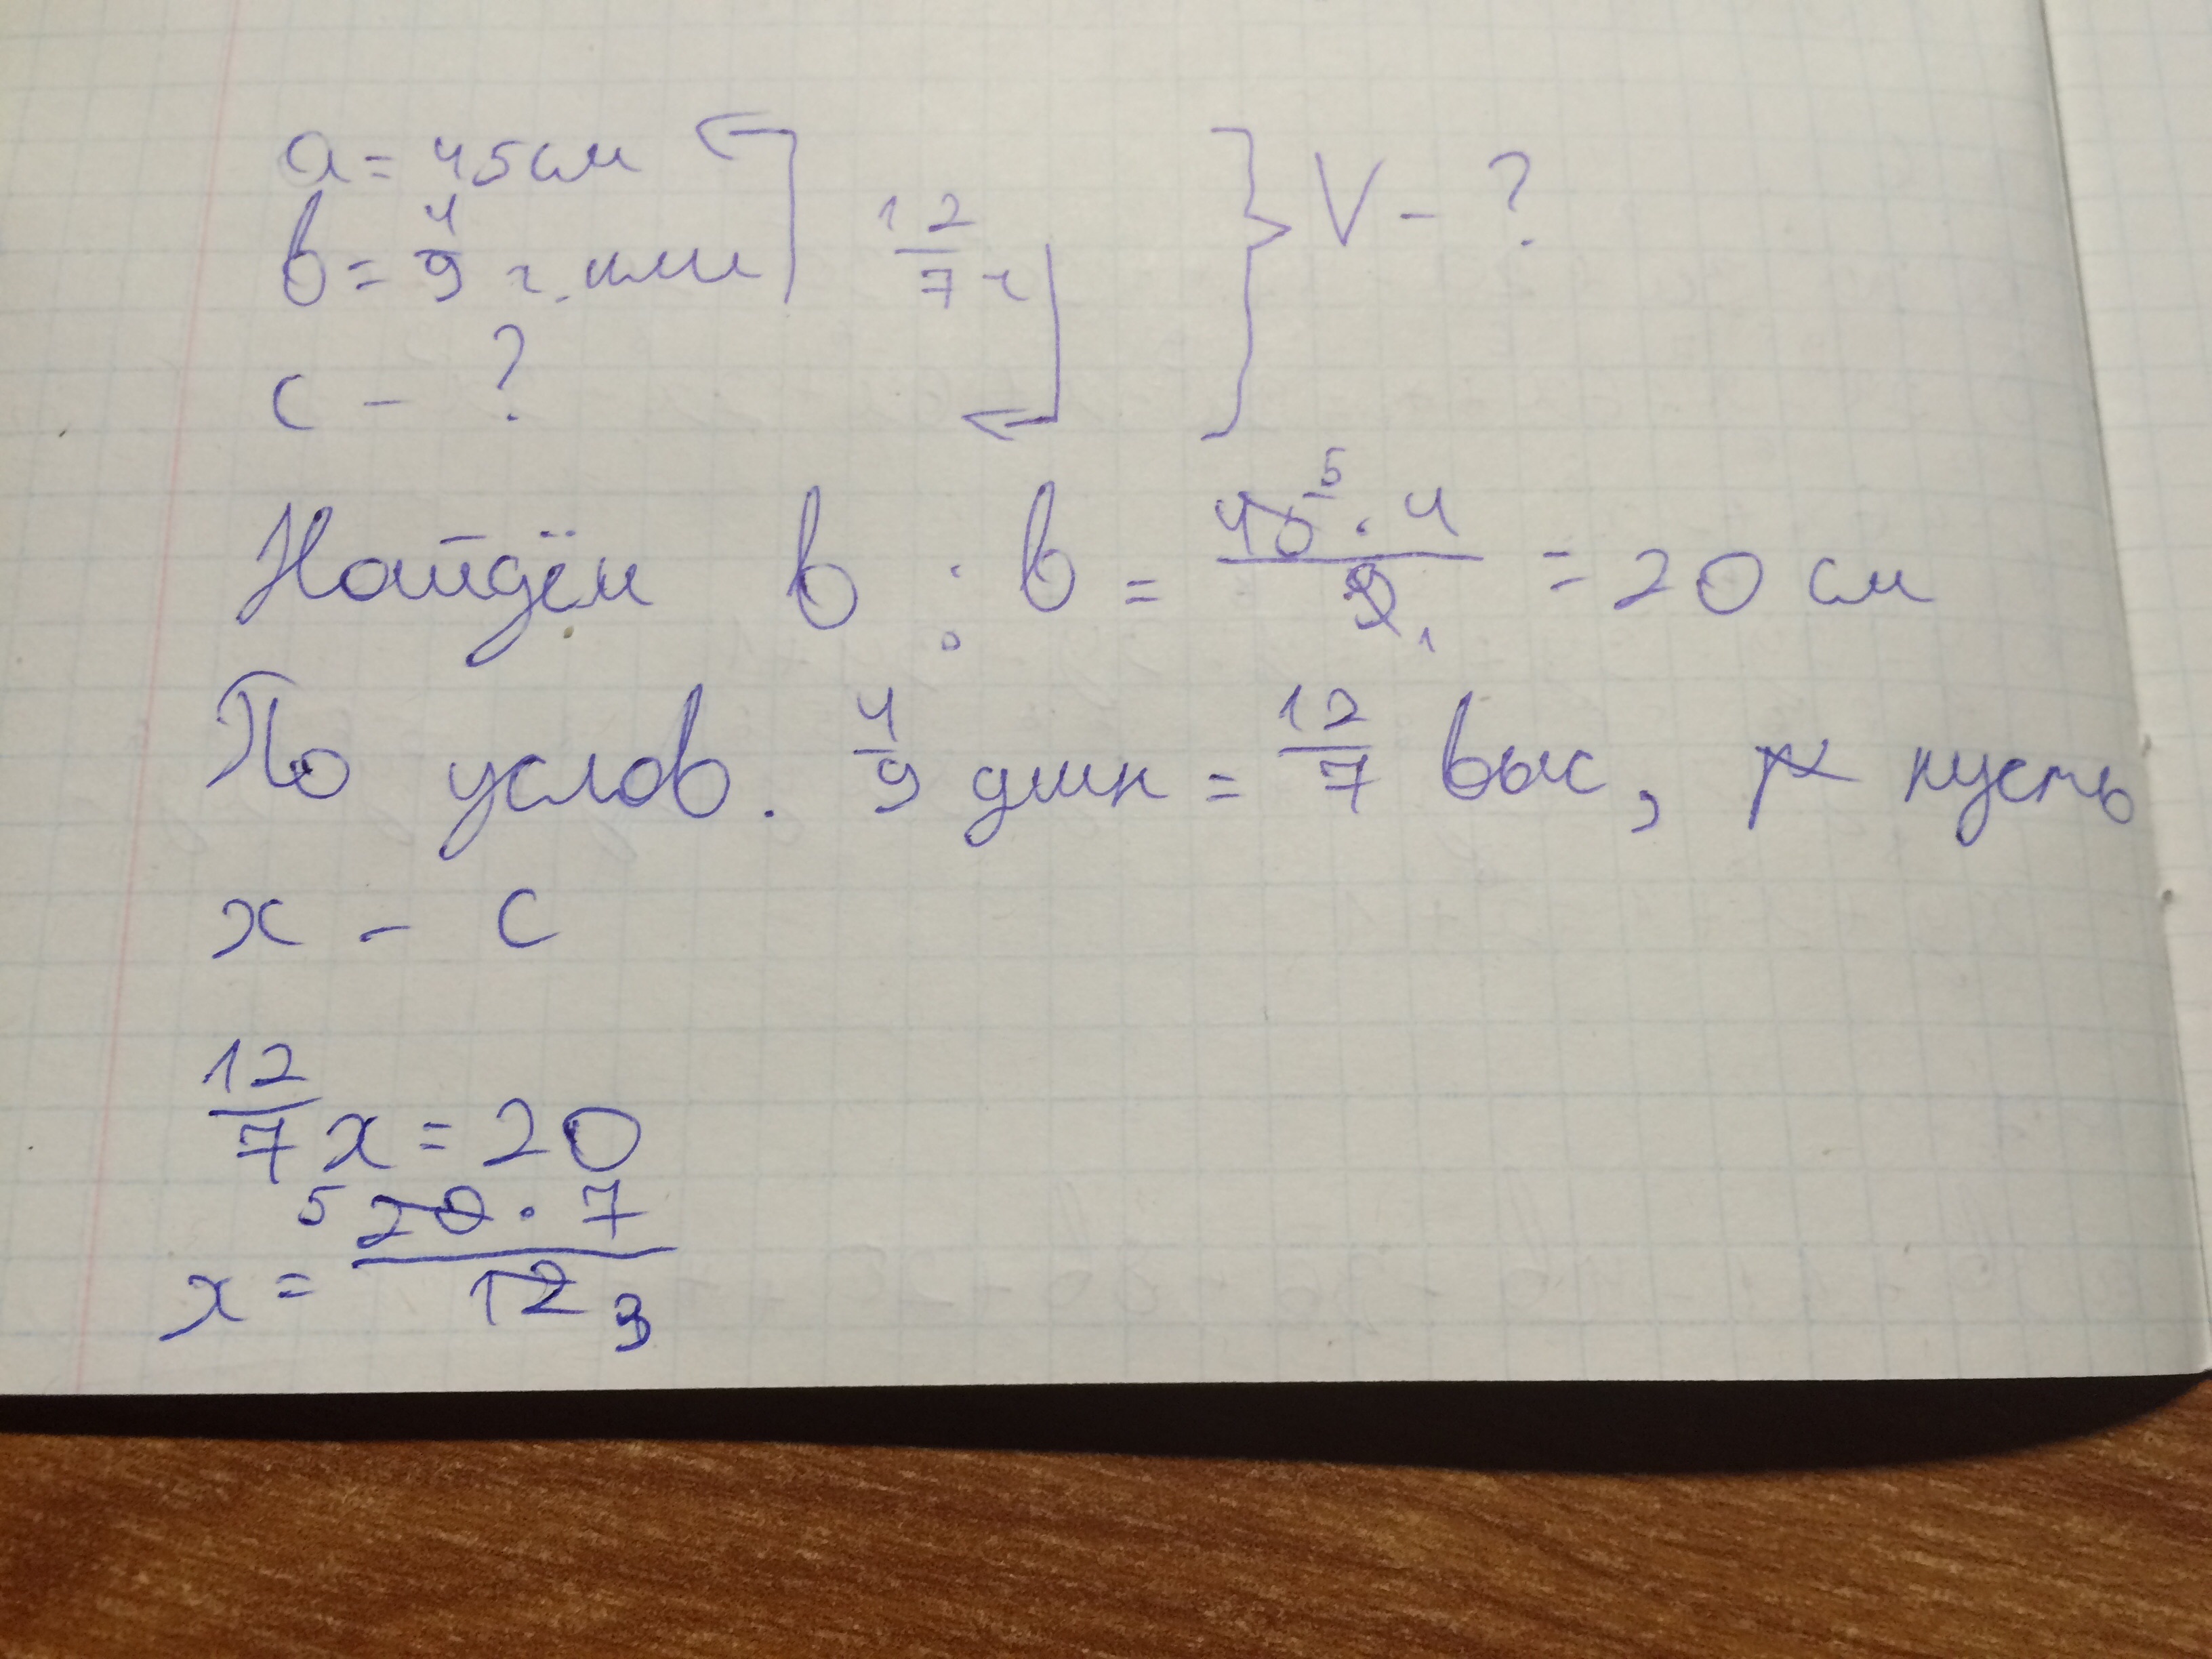 a = 45 см
b = 4/9 ч. или 12/7 ч } V - ?
c - ?
Найдём b : b = 45 5 · 4 / 9 1 = 20 см
По услов. 4/9 длин = 12/7 выс, пусть
x - c
12/7 x = 20
x = 5 20 · 7 / 12 3